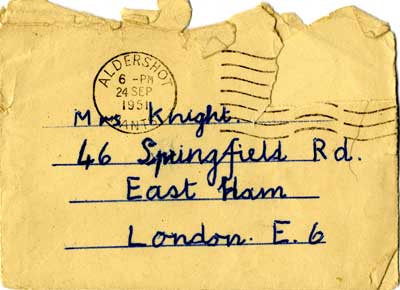 ALDERSHOT
6 - PM
24 SEP
1951
HANTS
Mrs Knight.
46 Springfield Rd.
East Ham
London. E. 6